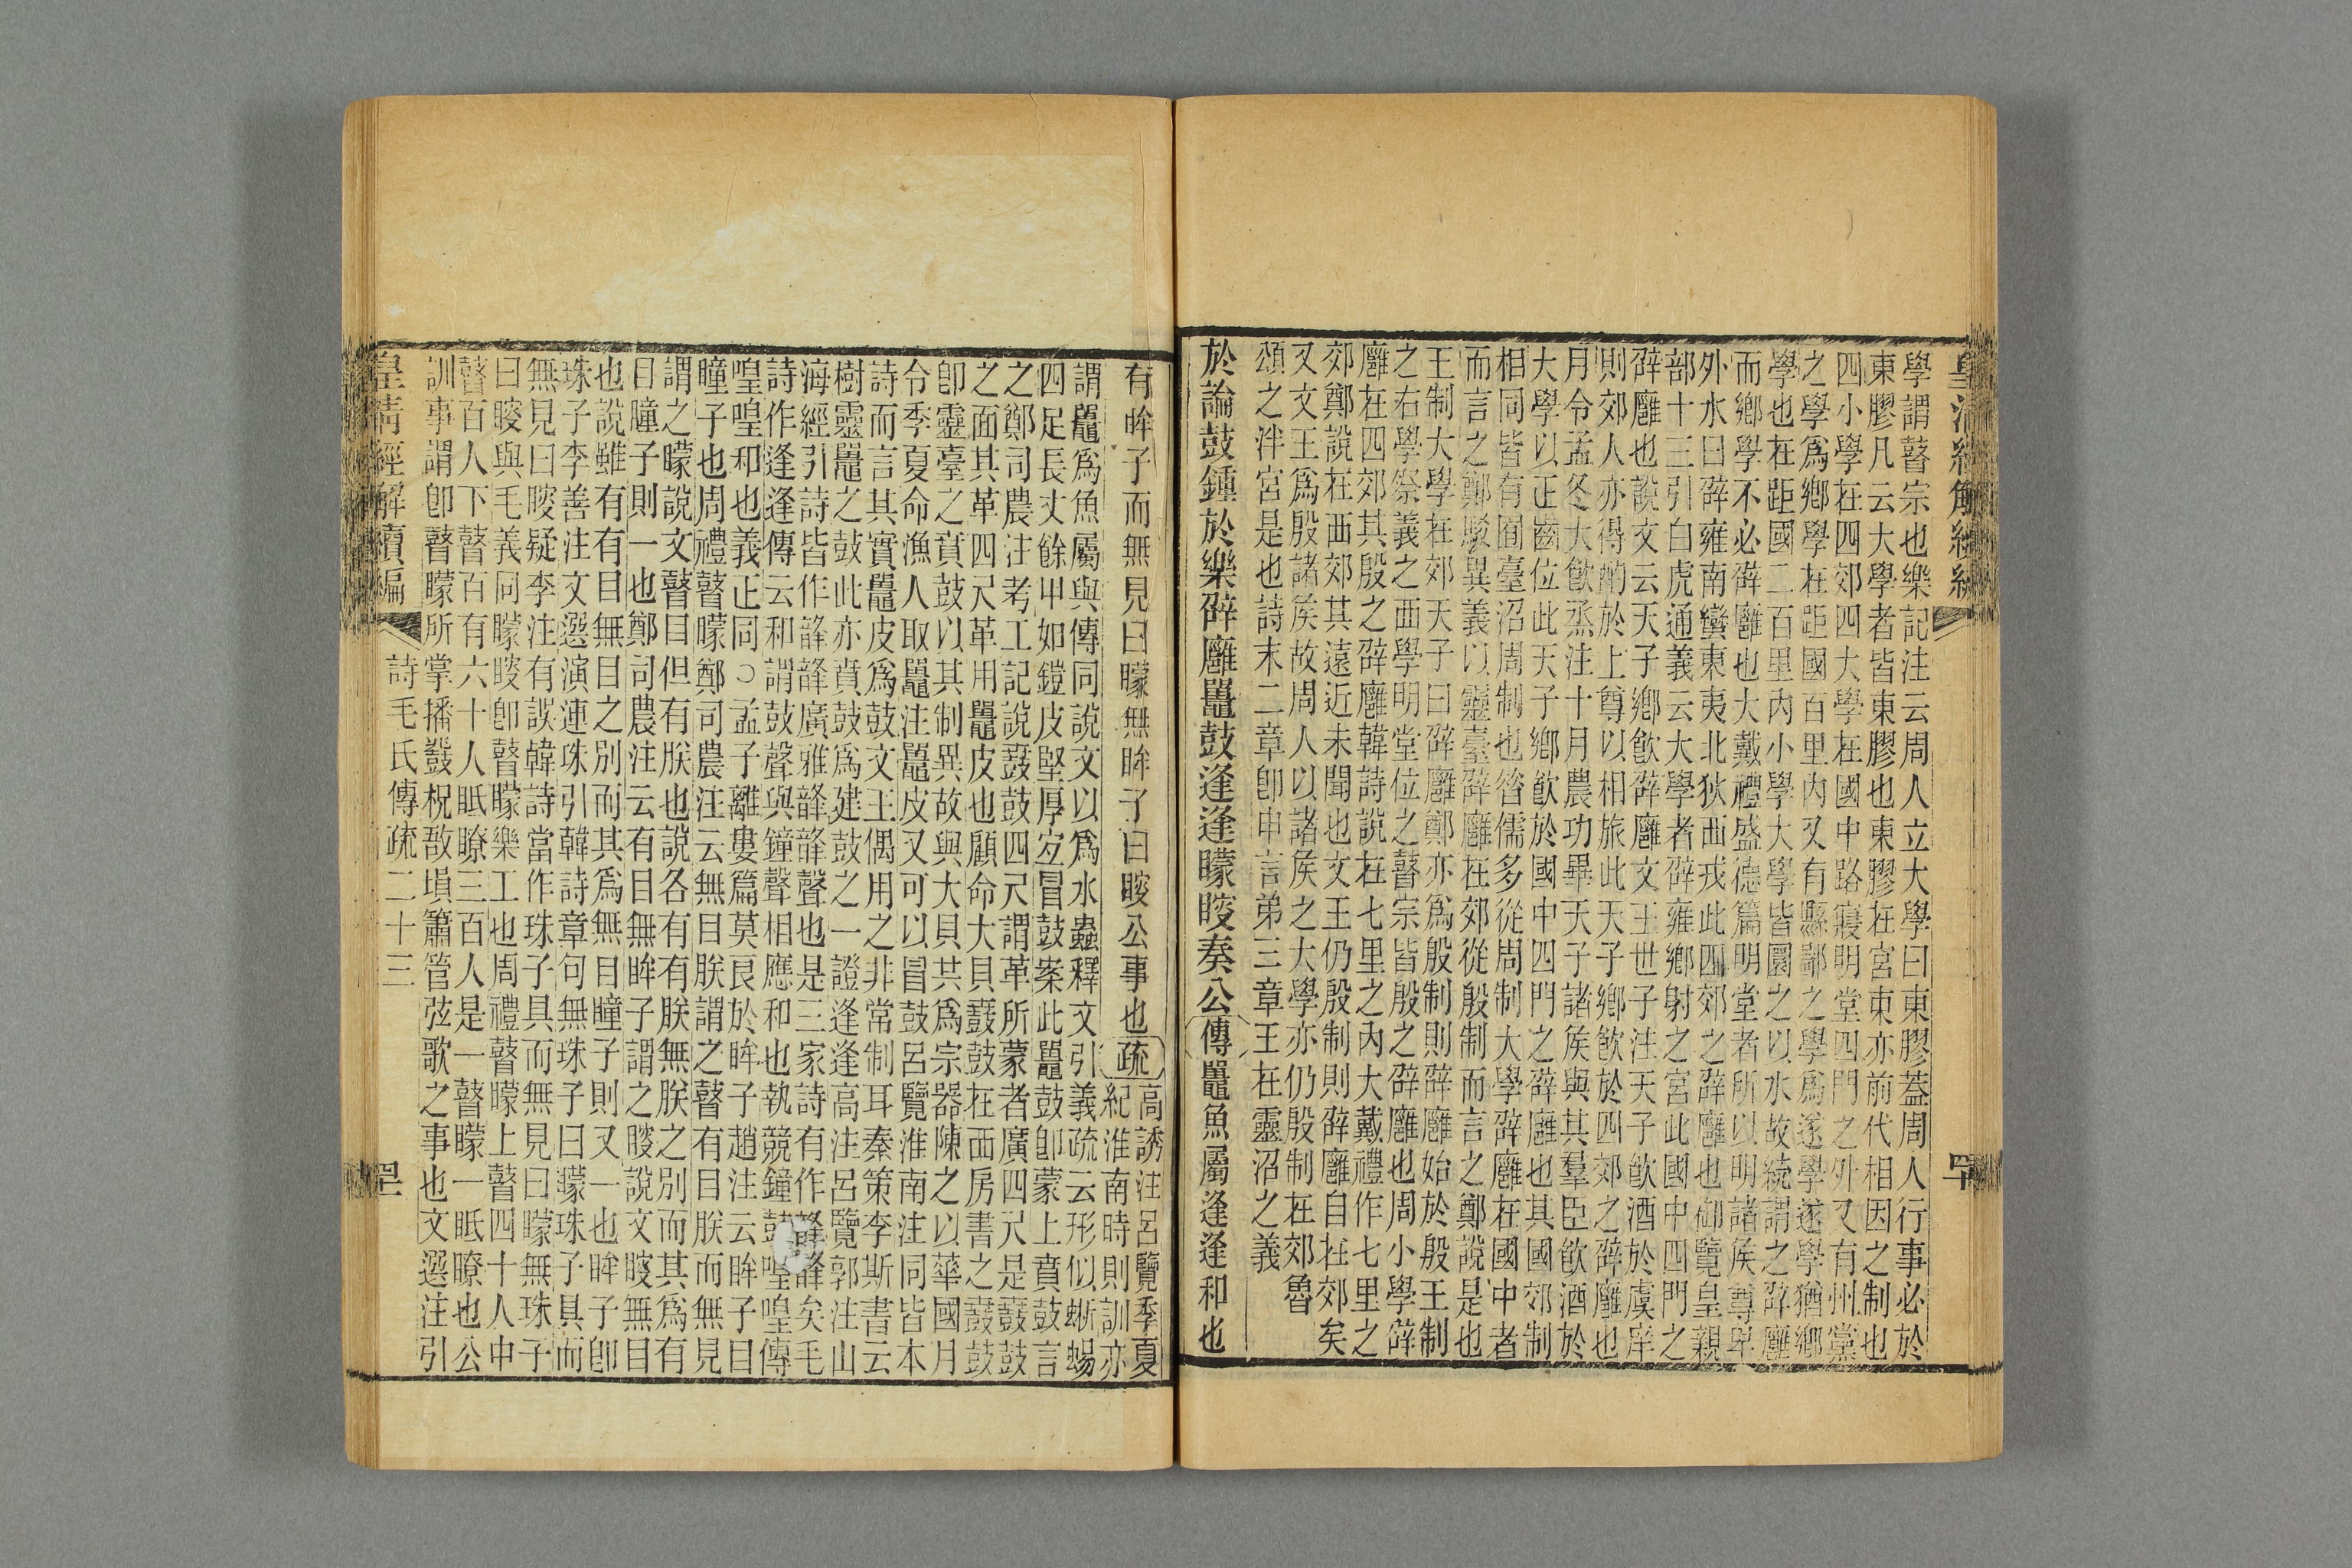 皇清經解續編
四十
學謂瞽宗也樂記注云周人立大學曰東膠蓋周人行事必於
東膠凡云大學者皆東膠也東膠在宮東亦前代相因之制也
四小學在四郊四大學在國中路寢明堂四門之外又有州黨
之學爲鄉學在距國百里內又有縣鄙之學爲遂學遂學猶鄉
學也在距國二百里內小學大學皆圜之以水故統謂之辟廱
而鄉學不必辟廱也大戴禮盛德篇明堂者所以明諸矦尊卑
外水曰辟雍南蠻東夷北狄西戎此四郊之辟廱也御覽皇親
部十三引白虎通義云大學者辟雍鄉射之宮此國中四門之
辟廱也說文云天子鄉飮辟廱文王世子注天子飮酒於虞庠
則郊人亦得酌於上尊以相旅此天子鄉飮於四郊之辟廱也
月令孟冬大飮烝注十月農功畢天子諸矦與其羣臣飮酒於
大學以正齒位此天子鄉飮於國中四門之辟廱也其國郊制
相同皆有囿臺沼周制也咎儒多從周制大學辟廱在國中者
而言之鄭駮異義以靈臺辟廱在郊從殷制而言之鄭說是也
王制大學在郊天子曰辟廱鄭亦爲殷制則辟廱始於殷王制
之右學祭義之西學明堂位之瞽宗皆殷之辟廱也周小學辟
廱在四郊其殷之辟廱韓詩說在七里之內大戴禮作七里之
郊鄭說在西郊其遠近未聞也文王仍殷制則辟廱自在郊矣
又文王爲殷諸矦故周人以諸矦之大學亦仍殷制在郊魯
頌之泮宮是也詩末二章卽申言弟三章王在靈沼之義
於論鼓鍾於樂辟廱鼉鼓逢逢矇瞍奏公傳鼉魚屬逢逢和也
有眸子而無見曰矇無眸子曰瞍公事也疏高誘注呂覽季夏
紀淮南時則訓亦
謂鼉爲魚屬與傳同說文以爲水蟲釋文引義疏云形似蜥蜴
四足長丈餘甲如鎧皮堅厚宐冒鼓案此鼉鼓卽蒙上賁鼓言
之鄭司農注考工記說鼖鼓四尺謂革所蒙者廣四尺是鼖鼓
之面其革四尺革用鼉皮也顧命大貝鼖鼓在西房書之鼖鼓
卽靈臺之賁鼓以其制異故與大貝共爲宗器陳之以華國月
令季夏命漁人取鼉注鼉皮又可以冒鼓呂覽淮南注同皆本
詩而言其實鼉皮爲鼓文王偶用之非常制耳秦策李斯書云
樹靈鼉之鼓此亦賁鼓爲建鼓之一證逢逢高注呂覽郭注山
海經引詩皆作韸韸廣雅韸韸聲也是三家詩有作韸韸矣毛
詩作逢逢傳云和謂鼓聲與鐘聲相應和也執競鐘鼓喤喤傳
喤喤和也義正同○孟子離婁篇莫良於眸子趙注云眸子目
瞳子也周禮瞽矇鄭司農注云無目朕謂之瞽有目朕而無見
謂之矇說文瞽目但有朕也說各有有朕無朕之別而其爲有
目瞳子則一也鄭司農注云有目無眸子謂之瞍說文瞍無目
也說雖有有目無目之別而其爲無目瞳子則又一也眸子卽
珠子李善注文選演連珠引韓詩章句無珠子曰矇珠子具而
無見曰瞍疑李注有誤韓詩當作珠子具而無見曰矇無珠子
曰瞍與毛義同矇瞍卽瞽矇樂工也周禮瞽矇上瞽四十人中
瞽百人下瞽百有六十人眡瞭三百人是一瞽矇一眡瞭也公
訓事謂卽瞽矇所掌播鼗柷敔塤簫管弦歌之事也文選注引
皇清經解續編
詩毛氏傳疏二十三
四一